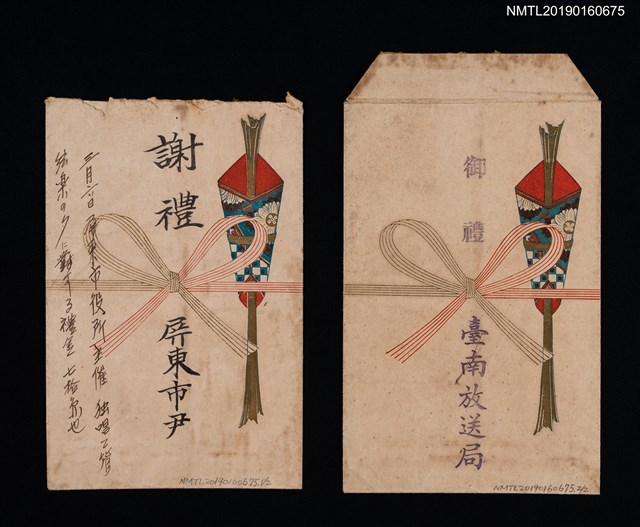 NMTL20190160675
謝禮
屏東市尹
三月六日屏東市役所主催 独唱ト管
絃楽の夕に対する禮金 七拾円也
NMTL20190160675.1/2
御禮
臺南放送局
NMTL20190160675.2/2